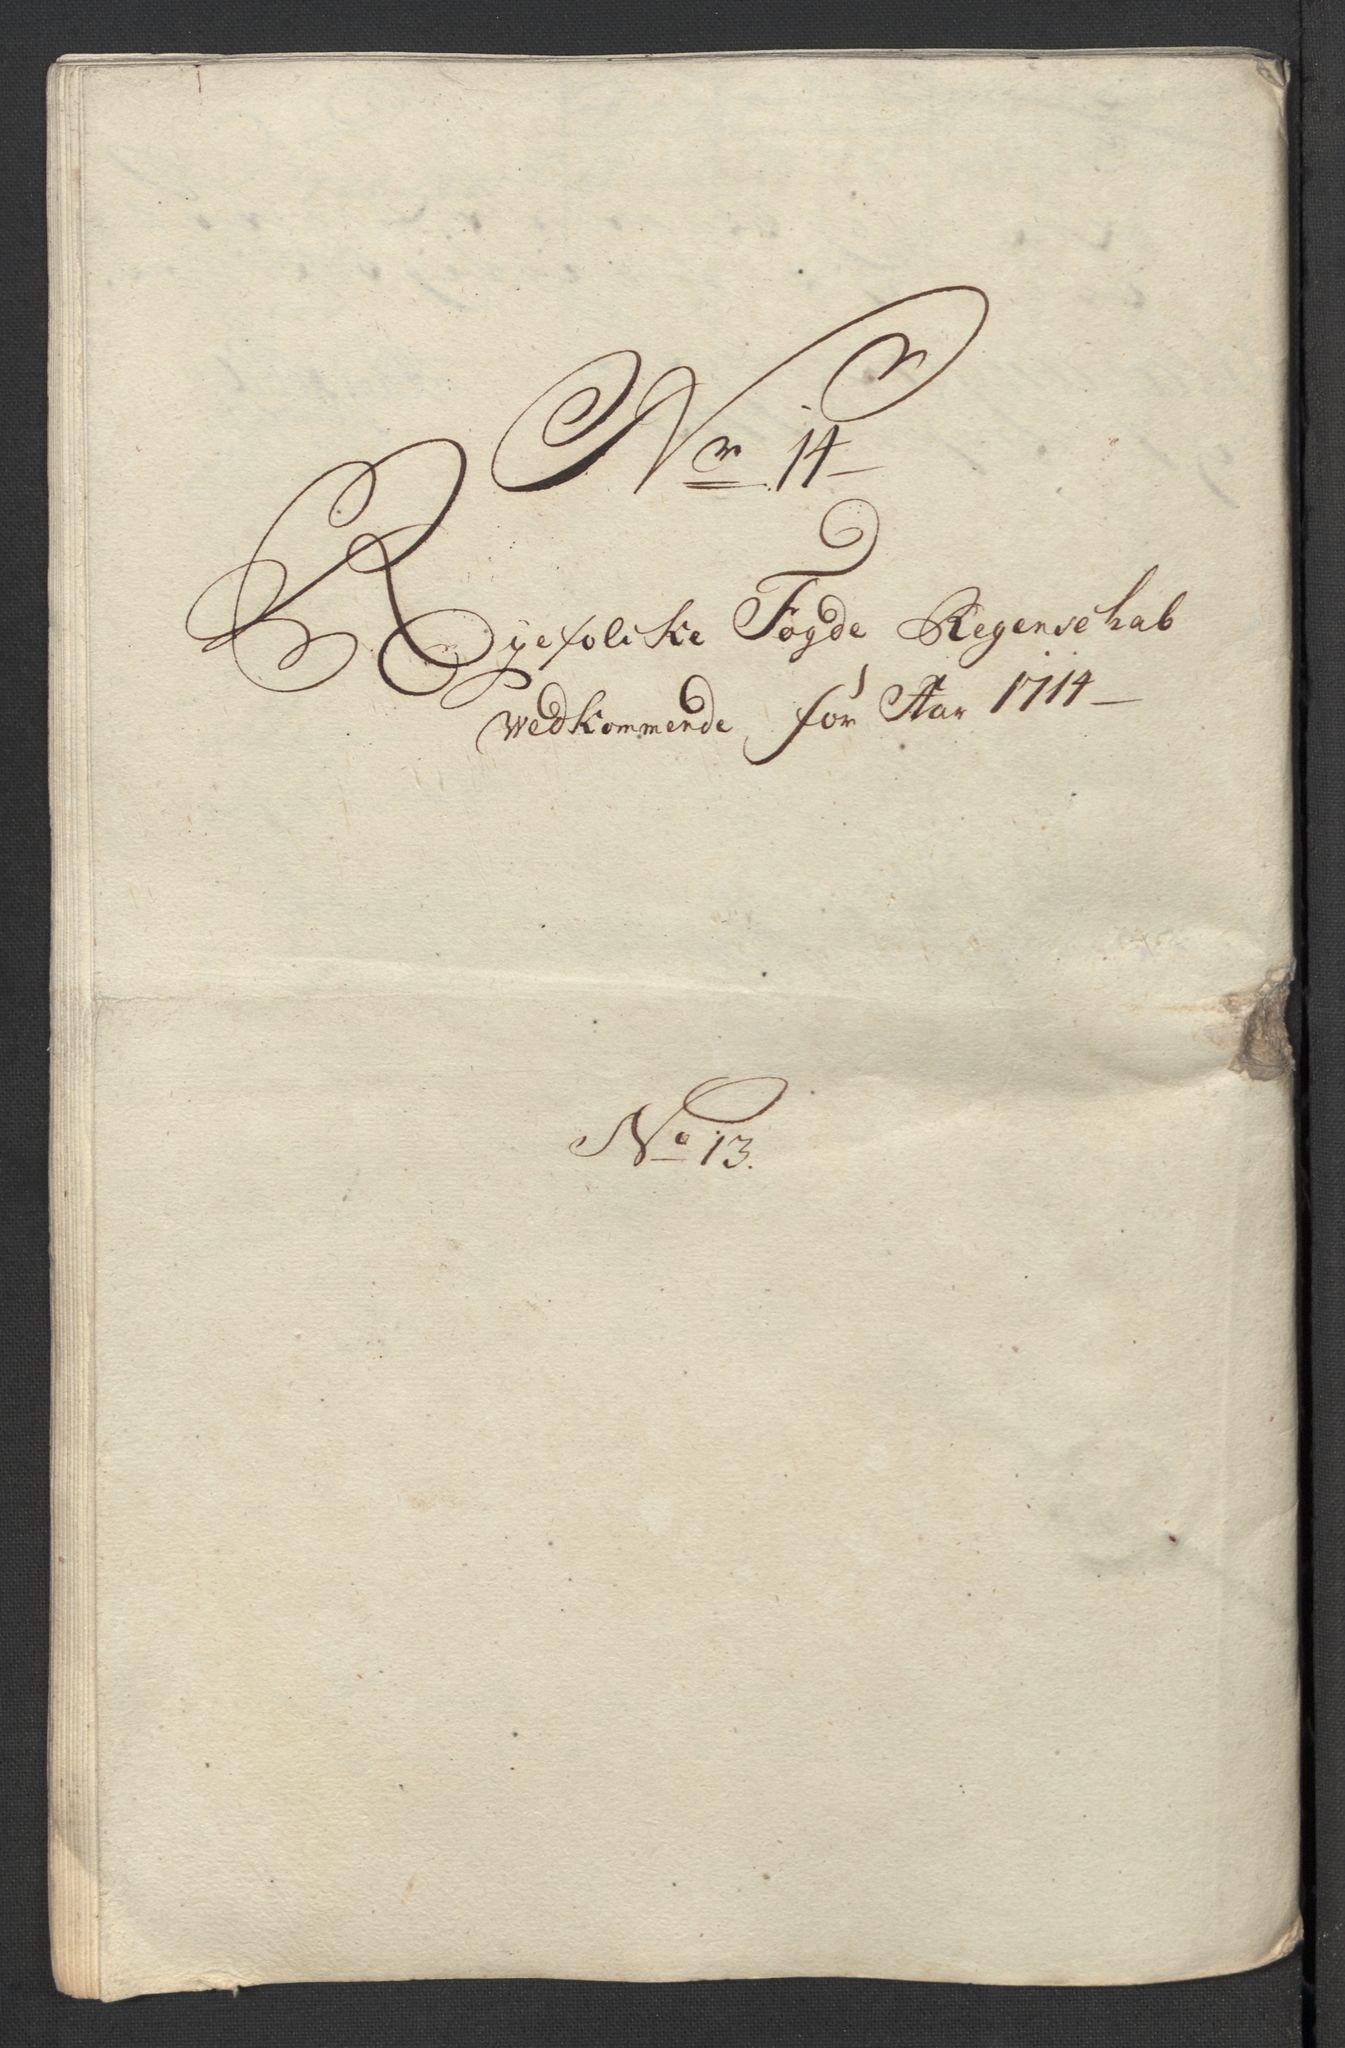 Nr 14
Ryefolcke Fogde Regenschab
wedkommende for Aar 1714
No 13.